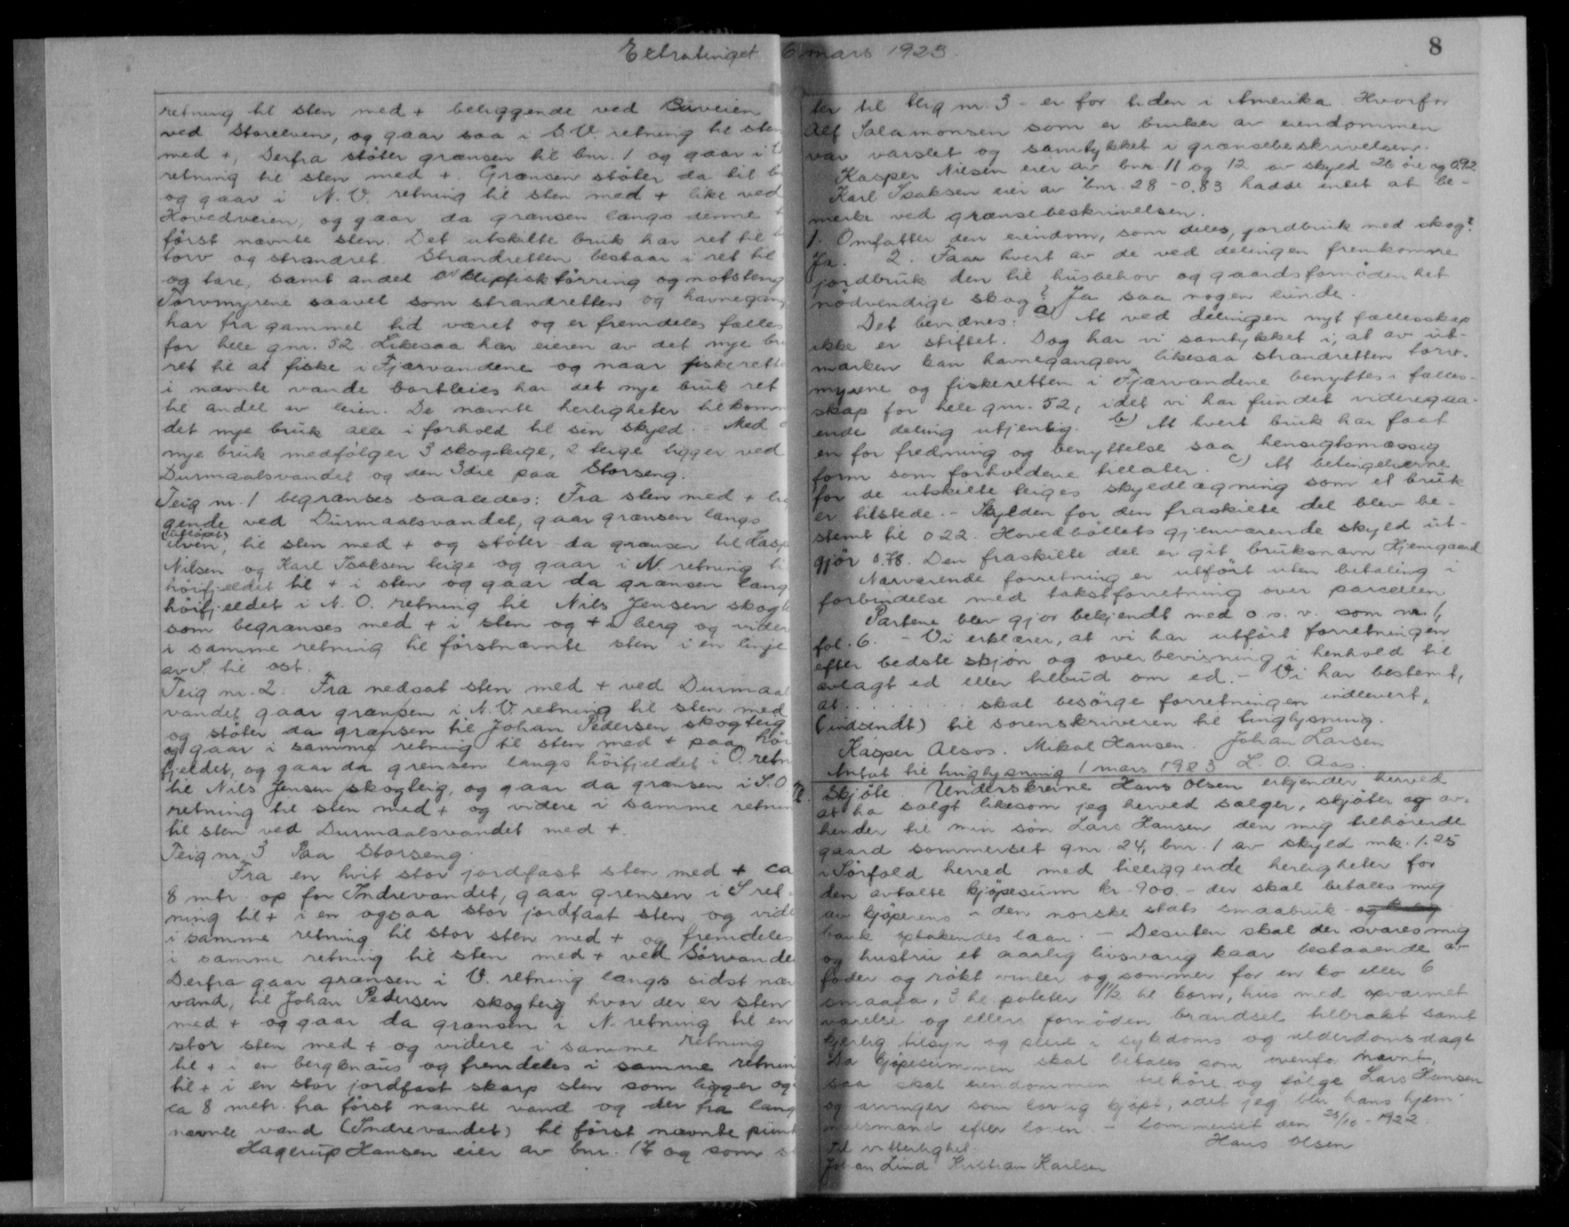 Extratinget 6 mars 1923
8
retning til sten med + beliggende ved Biveien
ved Storelven, og gaar saa i S.V. retning til sten
med +, Derfra støter grænsen til bnr. 1 og gaar i
retning til sten med +. Grænsen støter da til
og gaar i N.V. retning til sten med + like ved
Hovedveien, og gaar da grænsen langs denne
først nævnte sten. Det utskilte bruk har ret til
torv og strandret. Strandretten bestaar i ret til
og tare, samt andel av klipfisktörring og notsteng
Torvmyrene saavel som strandretten og havnegang
har fra gammel tid været og er fremdeles fælles
for hele gnr. 52. Likesaa har eieren av det nye
ret til at fiske i Fjærvandene og naar fiskerett
i nævnte vande bortleies har det nye bruk ret
til andel av leien. De nævnte herligheter tilkom
det nye bruk alle i forhold til sin skyld. Med
nye bruk medfølger 3 skogteige, 2 teige ligger ved
Durmaalsvandet og den 3die paa Storseng.
Teig nr. 1 begrænses saaledes: Fra sten med +
gende ved Durmaalsvandet, gaar grænsen langs
elven, til sten med + og støter da grænsen til Kasp
Nilsen og Karl Isaksen teige og gaar i N retning
höifjeldet til + i sten og gaar da grænsen lang
höifjeldet i N.O. retning til Nils Jensen skog
som begrænses med + i sten og + i berg og vider
i samme retning til förstnævnte sten i en linje
av S til ost.
Teig nr. 2. Fra nedsat sten med + ved Durmaal
vandet gaar grænsen i N.V. retning til sten med
og støter da grænsen til Johan Pedersen skogteig
og gaar i samme retning til sten med + paa höi
fjeldet, og gaar da grensen langs höifjeldet i O. retn
til Nils Jensen skogteig, og gaar da grænsen i S.O
retning til sten med + og videre i samme retnin
til sten ved Durmaalsvandet med +.
Teig nr. 3 Paa Storseng.
Fra en hvit stor jordfast sten med + ca
8 mtr. op for Indrevandet, gaar grensen i S ret-
ning til + i en ogsaa stor jordfast sten og vide
i samme retning til stor sten med + og fremdeles
i samme retning til sten med + ved Sörvande
Derfra gaar grænsen i V. retning langs sidst næv
vand, til Johan Pedersen skogteig hvor der er sten
med + og gaar da grænsen i N. retning til en
stor sten med + og videre i samme retning
til + i en bergknaus og fremdeles i samme retnin
til + i en stor jordfast skarp sten som ligger og
ca 8 metr. fra först nævnte vand og der fra lang
nævnte vand (Indrevandet) til först nævnte punk
Hagerup Hansen eier av bnr. 17 og som
ter til teig nr. 3 - er for tiden i Amerika Hvorfor
Alf Salamonsen som er bruker av eiendommen
var varslet og samtykket i grænsebeskrivelsen.
Kasper Nilsen eier av bnr. 11 og 12 av skyld 26 öre og 0.92
Karl Isaksen eier av bnr. 28 - 0.83 hadde intet at be-
merke ved grænsebeskrivelsen.
1. Omfatter den eiendom, som deles, jordbruk med skog?
Ja. 2. Faar hvert av de ved delingen fremkomne
jordbruk den til husbehov og gaardsfornødenhet
nödvendige skog? Ja saa nogen lunde.
Det bevidnes: a) At ved delingen nyt fællesskap
ikke er stiftet. Dog har vi samtykket i, at av ut-
marken kan havnegangen likesaa strandretten torv-
myrene og fiskeretten i Fjærvandene benyttes i fælles-
skap for hele gnr. 52, idet vi har fundet videregaa-
ende deling utjenlig. b) At hvert bruk har faat
en for fredning og benyttelse saa hensigtsmæssig
form som forholdene tillater. c) At betingelserne
for de utskilte teiges skyldlægning som et bruk
er tilstede. - Skylden for den fraskilte del blev be-
stemt til 0.22. Hovedbøllets gjenværende skyld ut-
gjör 0.78. Den fraskilte del er git bruksnavn Hjemgaard
Nærværende forretning er utfört uten betaling i
forbindelse med takstforretning over parcellen
Partene blev gjor bekjendt med o.s.v. som nr 1,
fol. 6. - Vi erklærer, at vi har utfört forretningen
efter bedste skjön og overbevisning i henhold til
avlagt ed eller tilbud om ed. - Vi har bestemt,
at . . . . . . . . . skal besörge forretningen indlevert,
(indsendt) til sorenskriveren til tinglysning.
Kasper Alsos. Mikal Hansen. Johan Larsen
Antat til tinglysning 1 mars 1923 L. O. Aas.
Skjöte. Underskrevne Hans Olsen erkjender herved
at ha solgt likesom jeg herved sælger, skjöter og av-
hender til min sön Lars Hansen den mig tilhörende
gaard sommerset gnr. 24, bnr. 1 av skyld mk. 1.25
i Sörfold herred med tilliggende herligheter for
den avtalte kjöpesum kr. 900. - der skal betales mig
av kjöperens i den norske stats smaabruk og bolig
bank optakendes laan. - Desuten skal der svares mig
og hustru et aarlig livsvarig kaar bestaaende av
foder og rökt vinter og sommer for en ko eller 6
smaafæ, 3 hl poteter 1 1/2 hl korn, hus med opvarmet
værelse og ellers fornöden brændsel tilbrakt samt
kjærlig tilsyn og pleie i sykdoms og alderdoms dage
Da kjöpesummen skal betales som ovenfor nævnt,
saa skal eiendommen tilhöre og fölge Lars Hansen
og arvinger som lovlig kjöpt, idet jeg blir hans hjem-
melsmand efter loven. - Sommerset den 28/10 - 1922.
Hans Olsen
Til vitterlighet
Johan Lind Kristian Karlsen